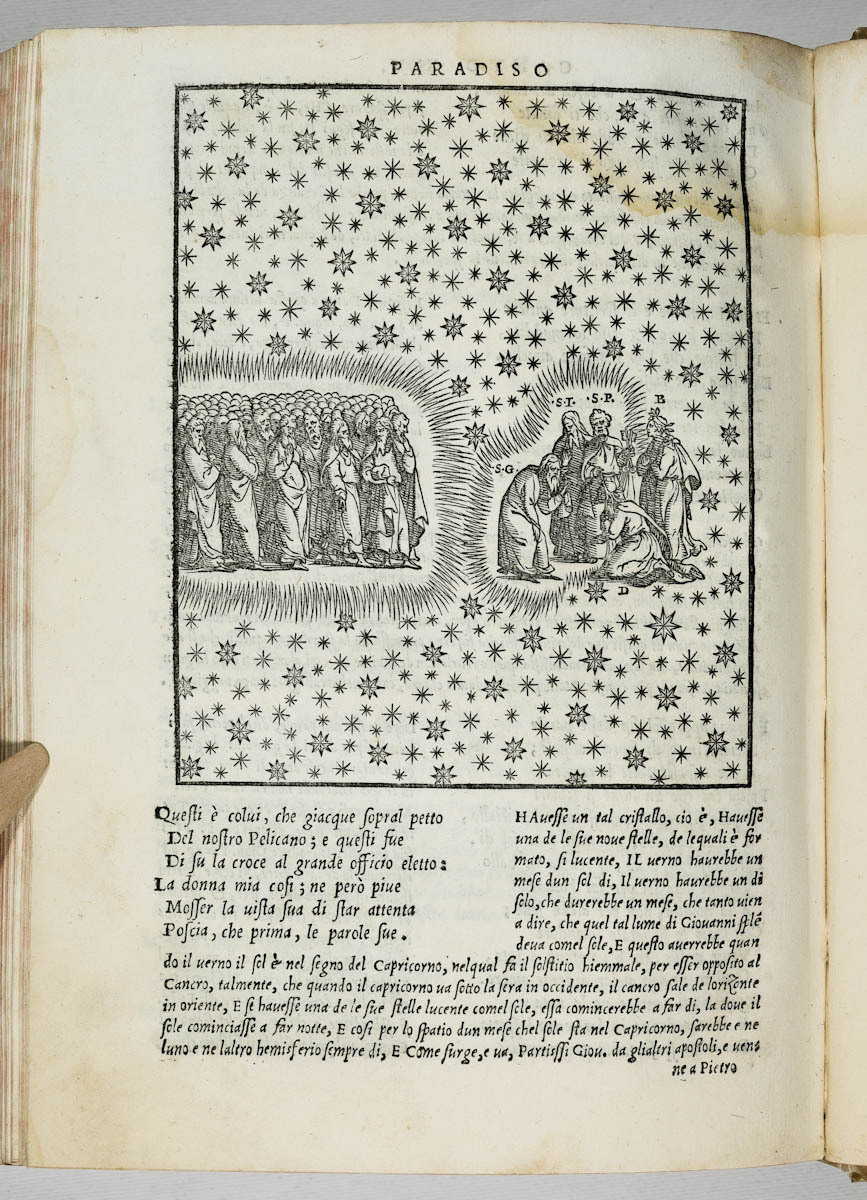 PARADISO
S.I. S.P. B
S.G.
D
Questi è colui, che giacque sopral petto
Del nostro Pelicano; e questi fue
Di su la croce al grande officio eletto:
La donna mia cosi; ne però piue
Mosser la uista sua di star attenta
Poscia, che prima, le parole sue.
HAuesse un tal cristallo, cio è, Hauesse
una de le sue noue stelle, de lequali è for
mato, si lucente, IL uerno haurebbe un
mese dun sol di, Il uerno haurebbe un di
solo, che durerebbe un mese, che tanto uien
a dire, che quel tal lume di Giouanni splē
deua comel sole, E questo auerrebbe quan
do il uerno il sol è nel segno del Capricorno, nelqual fa il solstitio hiemmale, per esser opposito al
Cancro, talmente, che quando il capricorno ua sotto la sera in occidente, il cancro sale de lorizonte
in oriente, E se hauesse una de le sue stelle lucente comel sole, essa comincerebbe a far di, la doue il
sole cominciasse a far notte, E cosi per lo spatio dun mese chel sole sta nel Capricorno, sarebbe e ne
luno e ne laltro hemisferio sempre di, E Come surge, e ua, Partissi Giou. da glialtri apostoli, e uen=
ne a Pietro